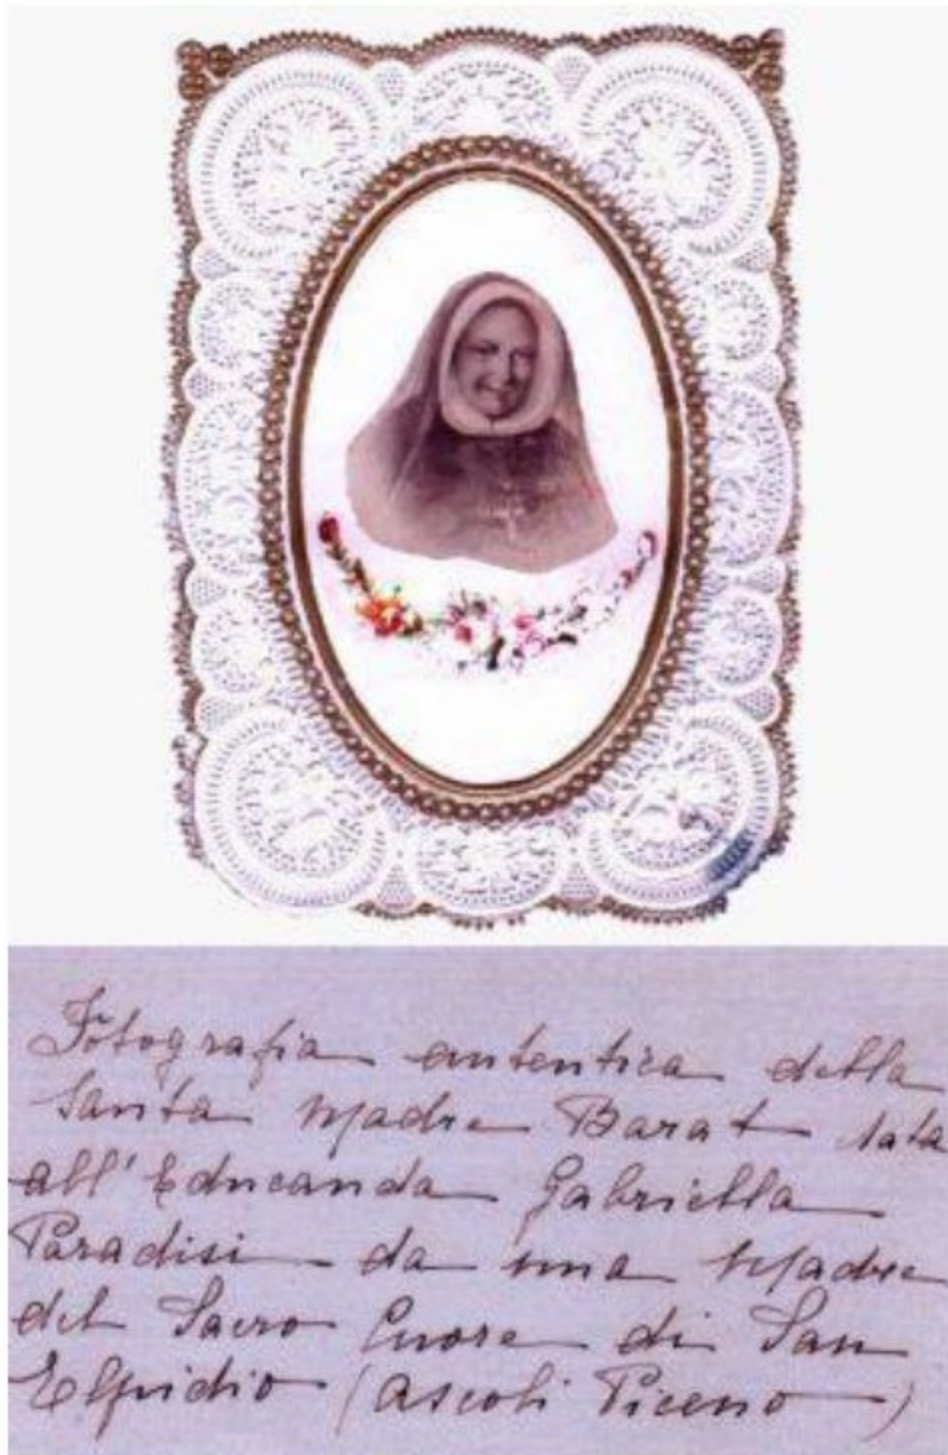 Fotografia autentica della
Santa Madre Barat data
all'Educanda Gabriella
Paradisi da una Madre
del Sacro Cuore di San
Elpidio (Ascoli Piceno)